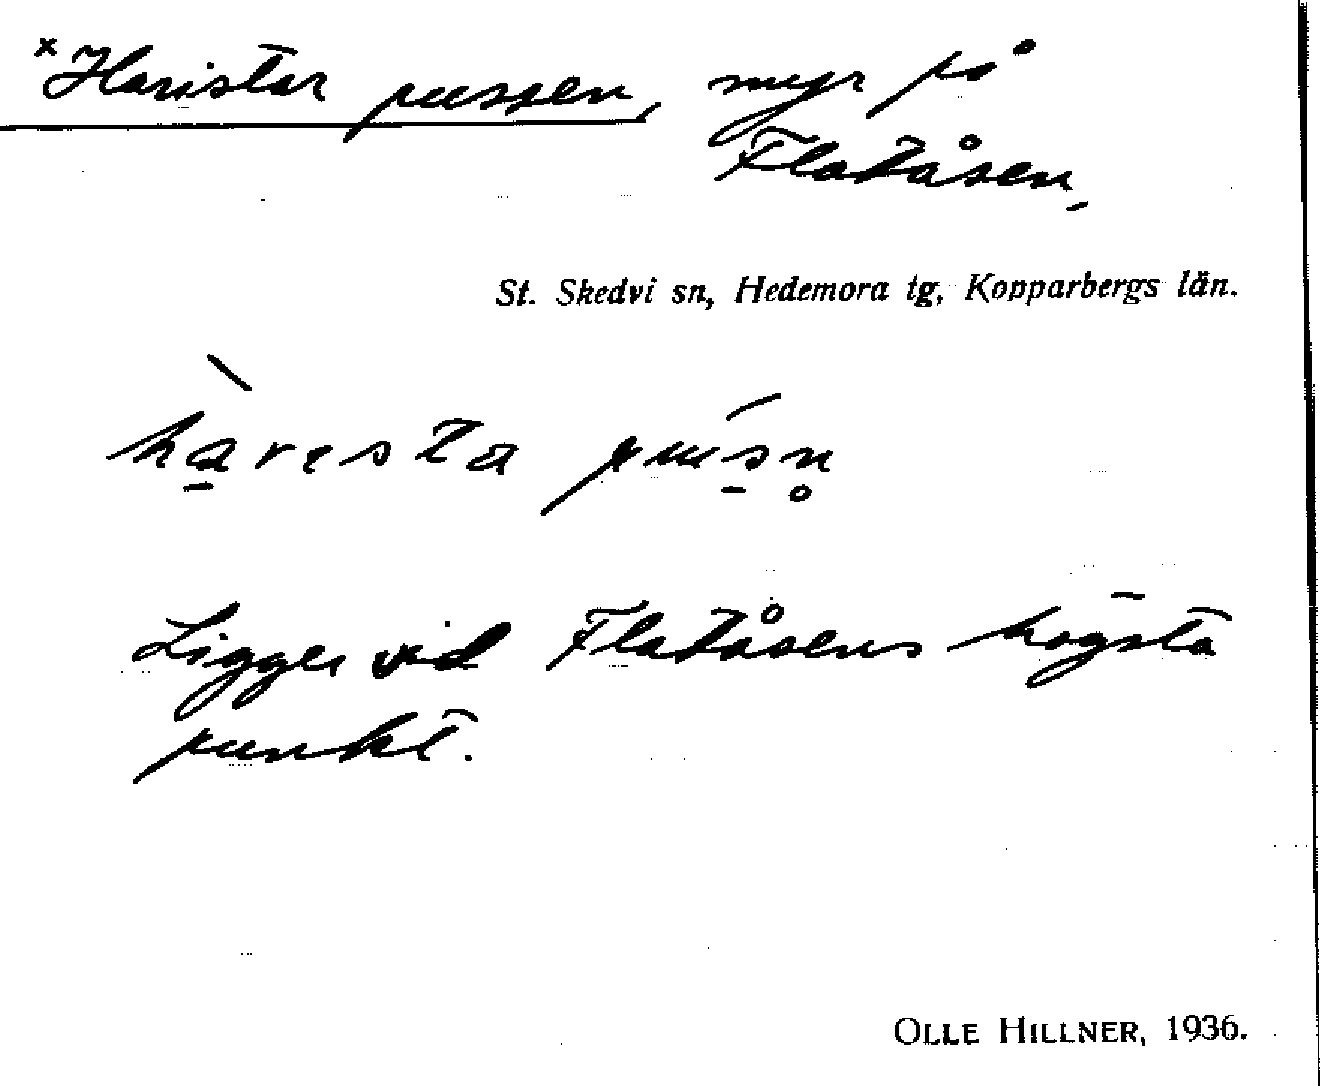 ×Haristar pussen, myr på
Flatåsen,
St. Skedvi sn, Hedemora tg, Kopparbergs län.
Ligger vid Flatåsens högsta
punkt.
OLLE HILLNER, 1936.